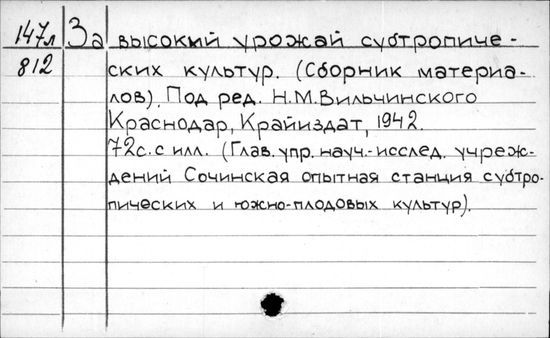 147л За высокий урожай субтропиче-
812 ских культур. (Сборник материа-
лов). Под ред. Н.М.Вильчинского
Краснодар, Крайиздат, 1942.
72с. с илл. (Глав. упр. науч.-исслед. учреж-
дений Сочинская опытная станция субтро-
пических и южно-плодовых культур).